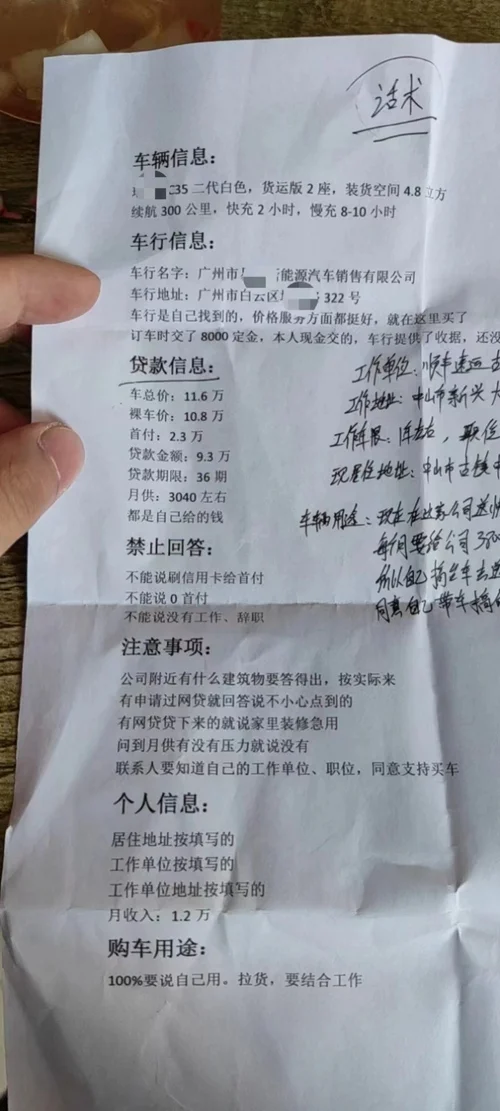 话术
车辆信息：
C35 二代白色，货运版 2 座，装货空间 4.8 立方
续航 300 公里，快充 2 小时，慢充 8-10 小时
车行信息：
车行名字：广州市 能源汽车销售有限公司
车行地址：广州市白云区 322 号
车行是自己找到的，价格服务方面都挺好，就在这里买了
订车时交了 8000 定金，本人现金交的，车行提供了收据，还没
贷款信息：
车总价：11.6 万
裸车价：10.8 万
首付：2.3 万
贷款金额：9.3 万
贷款期限：36 期
月供：3040 左右
都是自己给的钱
工作单位：顺丰速运
工作地址：中山市新兴大
工作年限： 左右，职位
现居住地址：中山市古镇
车辆用途：现在在这家公司送
每月要给公司
所以自己 台车去
同意自己带车
禁止回答：
不能说刷信用卡给首付
不能说 0 首付
不能说没有工作、辞职
注意事项：
公司附近有什么建筑物要答得出，按实际来
有申请过网贷就回答说不小心点到的
有网贷贷下来的就说家里装修急用
问到月供有没有压力就说没有
联系人要知道自己的工作单位、职位，同意支持买车
个人信息：
居住地址按填写的
工作单位按填写的
工作单位地址按填写的
月收入：1.2 万
购车用途：
100%要说自己用。拉货，要结合工作